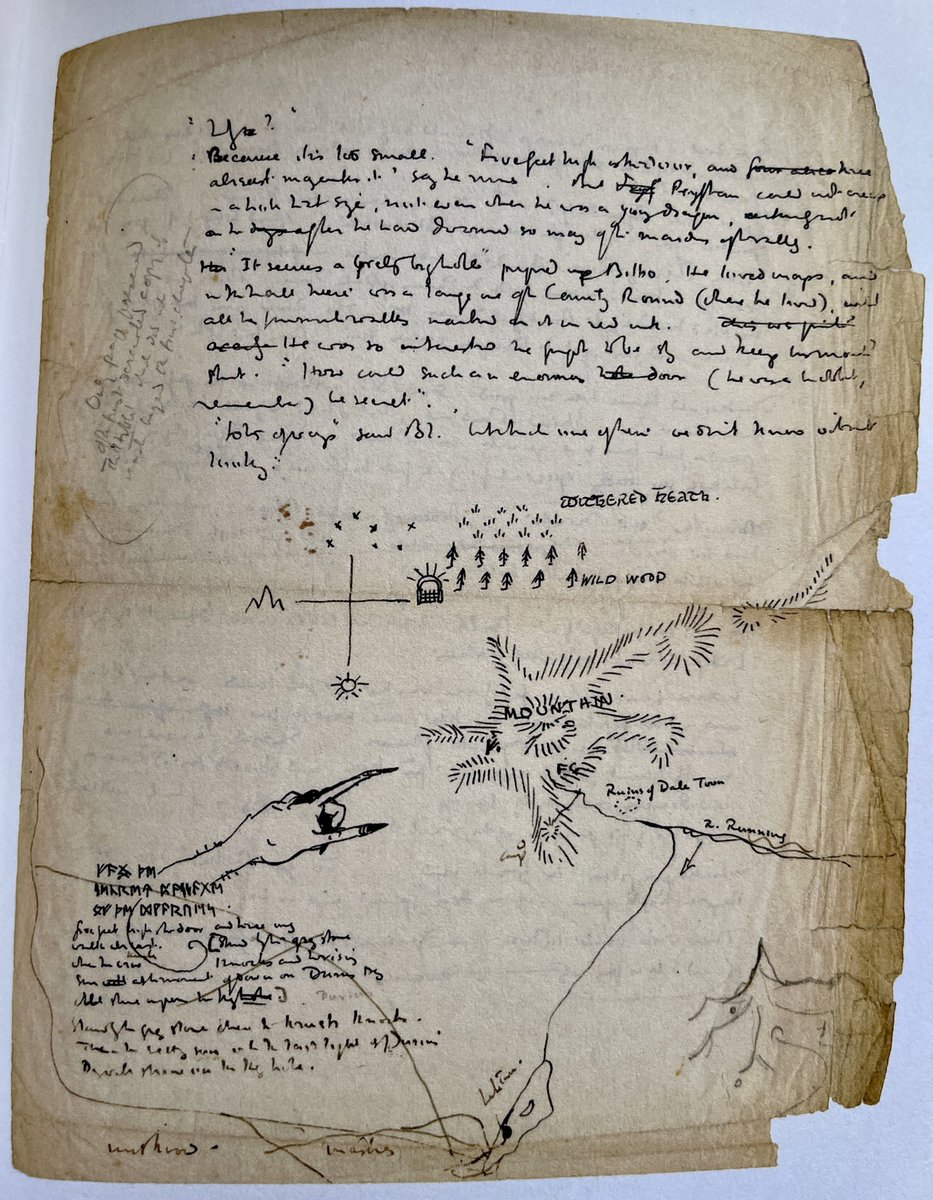 " Why? "
Because it is too small. "Five feet high is the door, and three
abreast may enter it" say the runes. But Pryftan could not creep
in a hole that size, not even when he was a young dragon, certainly not
in the days after he had devoured so many of the maidens of the valley.
"It seems a great big hole" piped up Bilbo. He loved maps, and
in the hall there was a large one of the Country Round (where he lived), with
all his favourite walks marked on it in red ink.
He was so interested he forgot to be shy and keep his mouth
shut. "How could such an enormous door (he was a hobbit,
remember) be secret".
"Lots of ways" said Bl. "but which one of them we don't know without
looking."
WITHERED HEATH.
WILD WOOD
MOUNTAIN
F.G.
Ruins of Dale Town
R. Running
ᚩᚠ ᚦᛖ ᛞᚹᚪᚱᚢᛖᛋ
five feet high the door and three may
walk abreast. Stand by the grey stone
knocks and the rising
sun at moment of dawn on Durins Day
shine upon the key hole
Durin
Stand by the grey stone when the thrush knocks.
Then the setting sun with the last light of Durin's
Day will shine on the key hole.
Lake Town.
mirkwood
marshes